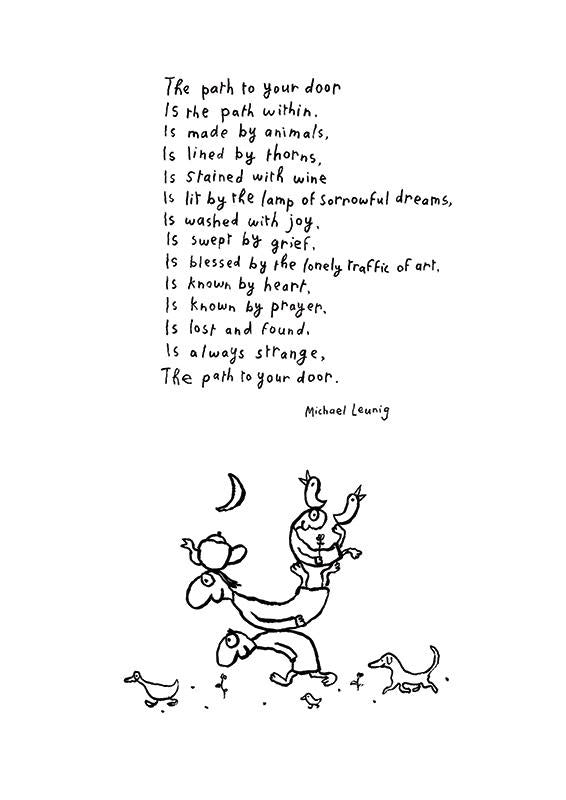 The path to your door
Is the path within.
Is made by animals,
Is lined by thorns,
Is stained with wine
Is lit by the lamp of sorrowful dreams,
Is washed with joy,
Is swept by grief,
Is blessed by the lonely traffic of art.
Is known by heart,
Is known by prayer,
Is lost and found.
Is always strange,
The path to your door.
Michael Leunig